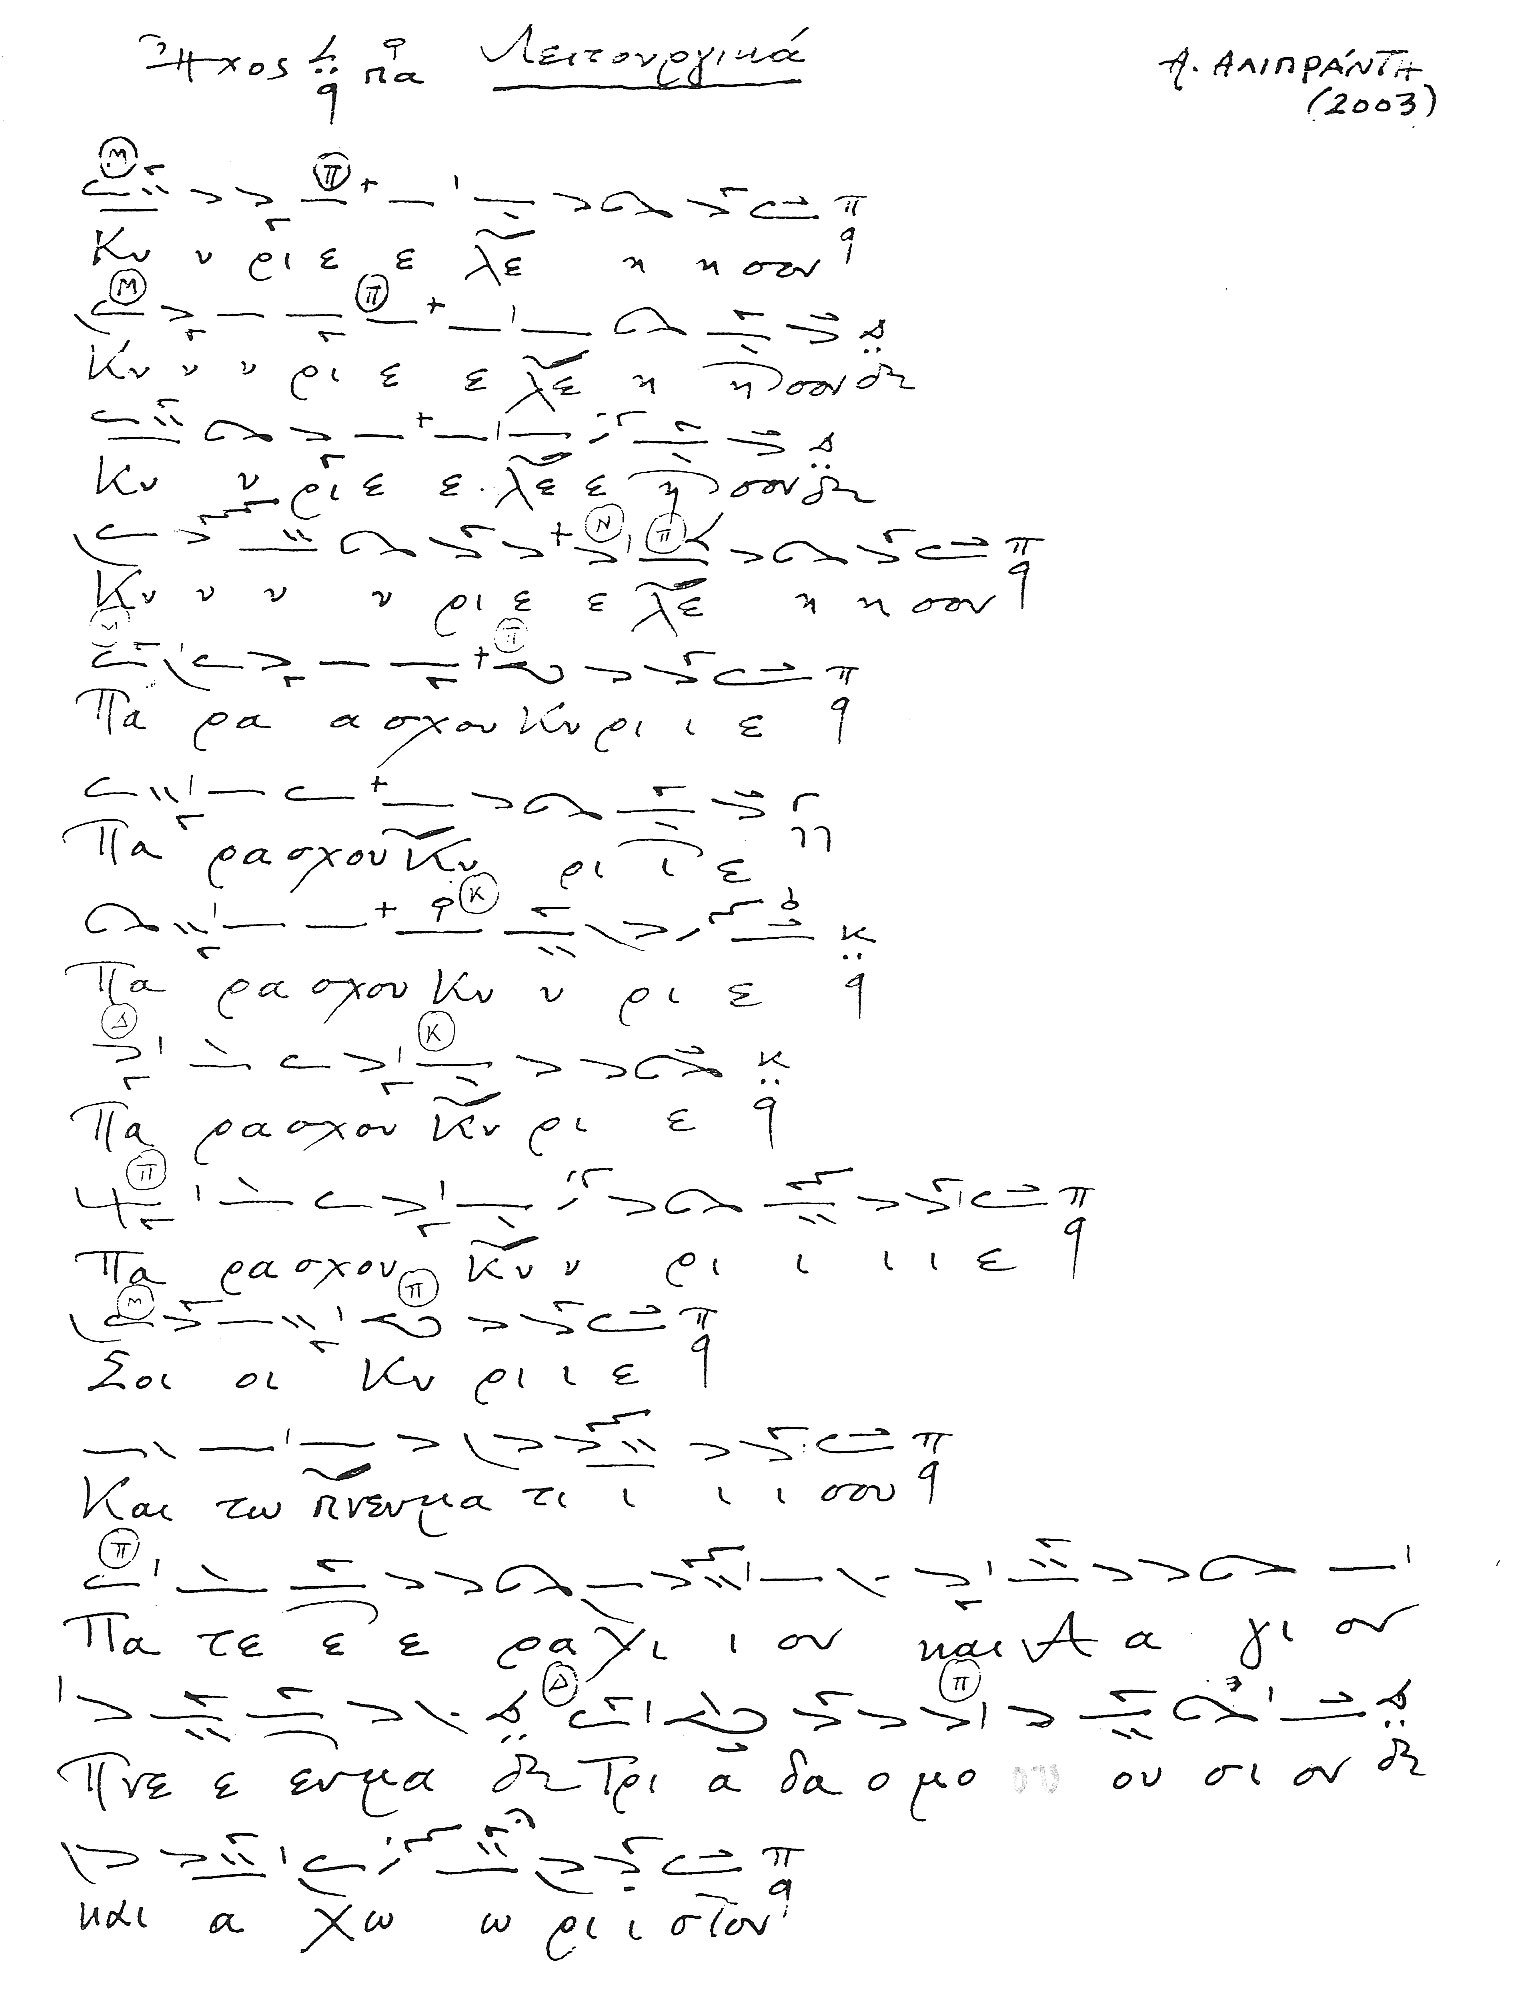 Ἦχος πα Λειτουργικά
Α. ΑΛΙΠΡΑΝΤΗ
(2003)
Μ Π π
Κυ υ ρι ε ε λε η η σον
Μ Π Δ
Κυ υ υ ρι ε ε λε η η σον δι
Δ
Κυ υ ρι ε ε λε ε η σον δι
Ν Π π
Κυ υ υ υ ρι ε ε λε η η σον
Μ Π π
Πα ρα α σχου Κυ ρι ι ε
Γ
Πα ρα σχου Κυ ρι ι ε
Κ κ
Πα ρα σχου Κυ υ ρι ε
Δ Κ κ
Πα ρα σχου Κυ ρι ε
Π π
Πα ρα σχου Κυ υ ρι ι ι ι ε
Μ Π π
Σοι οι Κυ ρι ι ε
π
Και τω πνευμα τι ι ι ι σου
Π
Πα τε ε ε ρα Υι ι ον και Α α γι ον
Δ Δ Π Δ
Πνε ε ευμα δι Τρι α δα ο μο ου ου σι ον δι
π
και α χω ω ρι ι στον